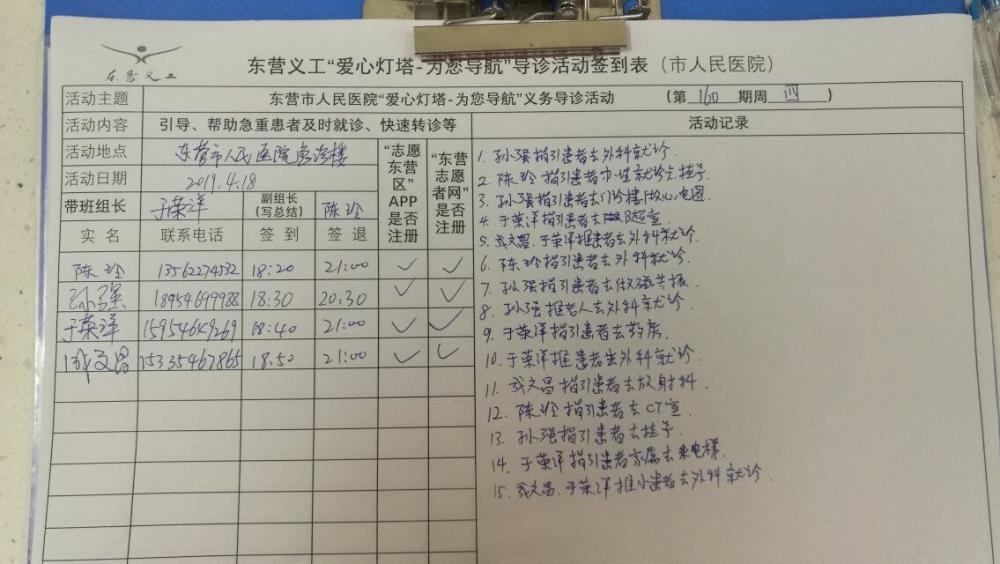 东营义工
东营义工“爱心灯塔-为您导航”导诊活动签到表（市人民医院）
活动主题 东营市人民医院“爱心灯塔-为您导航”义务导诊活动 (第 160 期周 四 )
活动内容 引导、帮助急重患者及时就诊、快速转诊等 活动记录
活动地点 东营市人民医院急诊楼
活动日期 2019.4.18
带班组长 于荣洋 副组长(写总结) 陈玲
“志愿东营区”APP是否注册 “东营志愿者网”是否注册
实名 联系电话 签到 签退
陈玲 13562274532 18:20 21:00 ✓ ✓
孙强 18954699988 18:30 20:30 ✓ ✓
于荣洋 15954649269 18:40 21:00 ✓ ✓
成文昌 15335467865 18:50 21:00 ✓ ✓
1. 孙强指引患者去外科就诊.
2. 陈玲指引患者 挂号.
3. 孙强指引患者去门诊楼做心电图
4. 于荣洋指引患者去B超室
5. 成文昌、于荣洋推患者去外科就诊.
6. 陈玲指引患者去外科就诊.
7. 孙强指引患者去做磁共振
8. 孙强推老人去外科就诊.
9. 于荣洋指引患者去药房
10. 于荣洋推患者去外科就诊.
11. 成文昌指引患者去放射科.
12. 陈玲指引患者去CT室
13. 孙强指引患者去挂号.
14. 于荣洋指引患者家属去乘电梯.
15. 成文昌、于荣洋推小患者去外科就诊.